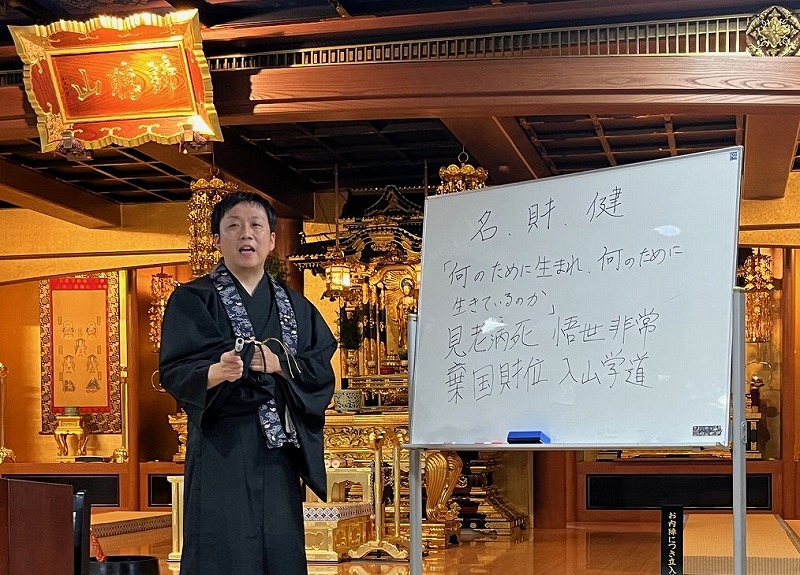 名．財．健
「何のために生まれ、何のために
生きているのか」
見老病死　悟世非常
棄国財位　入山学道
お内陣につき立入